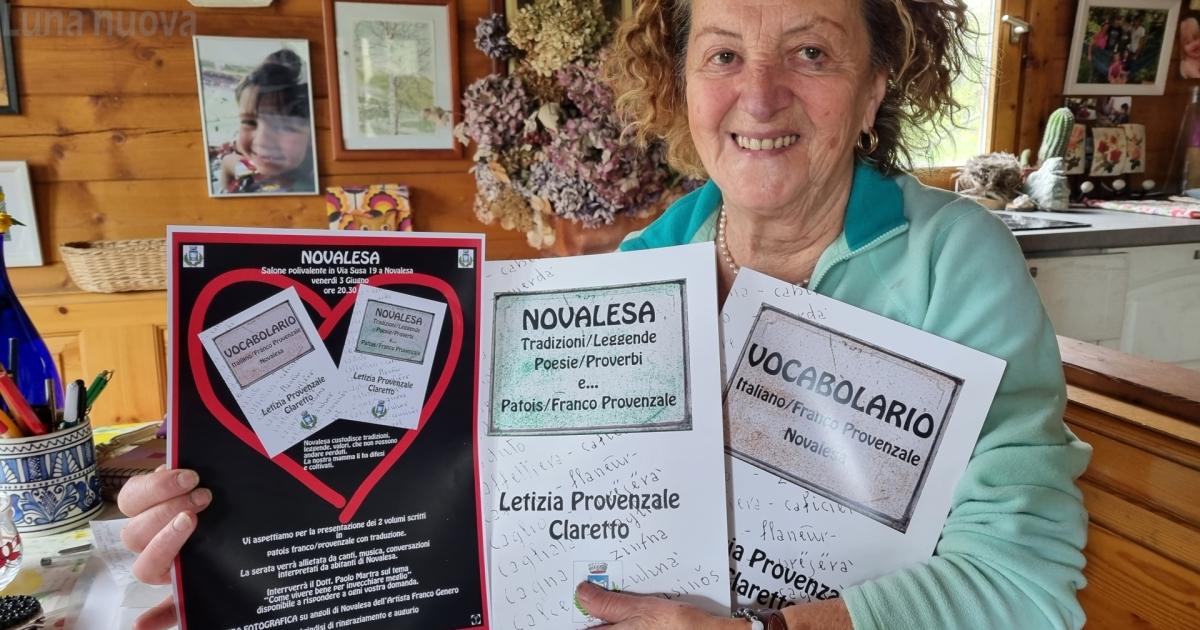 Luna nuova
NOVALESA
Salone polivalente in Via Susa 19 a Novalesa
venerdì 3 Giugno
ore 20,30
VOCABOLARIO
Italiano/Franco Provenzale
Novalesa
Letizia Provenzale
Claretto
NOVALESA
Tradizioni/Leggende
Poesie/Proverbi
e...
Patois/Franco Provenzale
Letizia Provenzale
Claretto
Novalesa custodisce tradizioni,
leggende, valori, che non possono
andare perduti.
La nostra mamma li ha difesi
e coltivati.
Vi aspettiamo per la presentazione dei 2 volumi scritti
in
patois franco/provenzale con traduzione.
La serata verrà allietata da canti, musica, conversazioni
interpretati da abitanti di Novalesa.
Interverrà il Dott. Paolo Martra sul tema
"Come vivere bene per invecchiare meglio",
disponibile a rispondere a ogni vostra domanda.
FOTOGRAFICA su angoli di Novalesa dell'Artista Franco Genero
di ringraziamento e augurio
NOVALESA
Tradizioni/Leggende
Poesie/Proverbi
e...
Patois/Franco Provenzale
flaneur
Letizia Provenzale
Claretto
VOCABOLARIO
Italiano/Franco Provenzale
Novalesa
flaneur
Letizia Provenza
Claretto